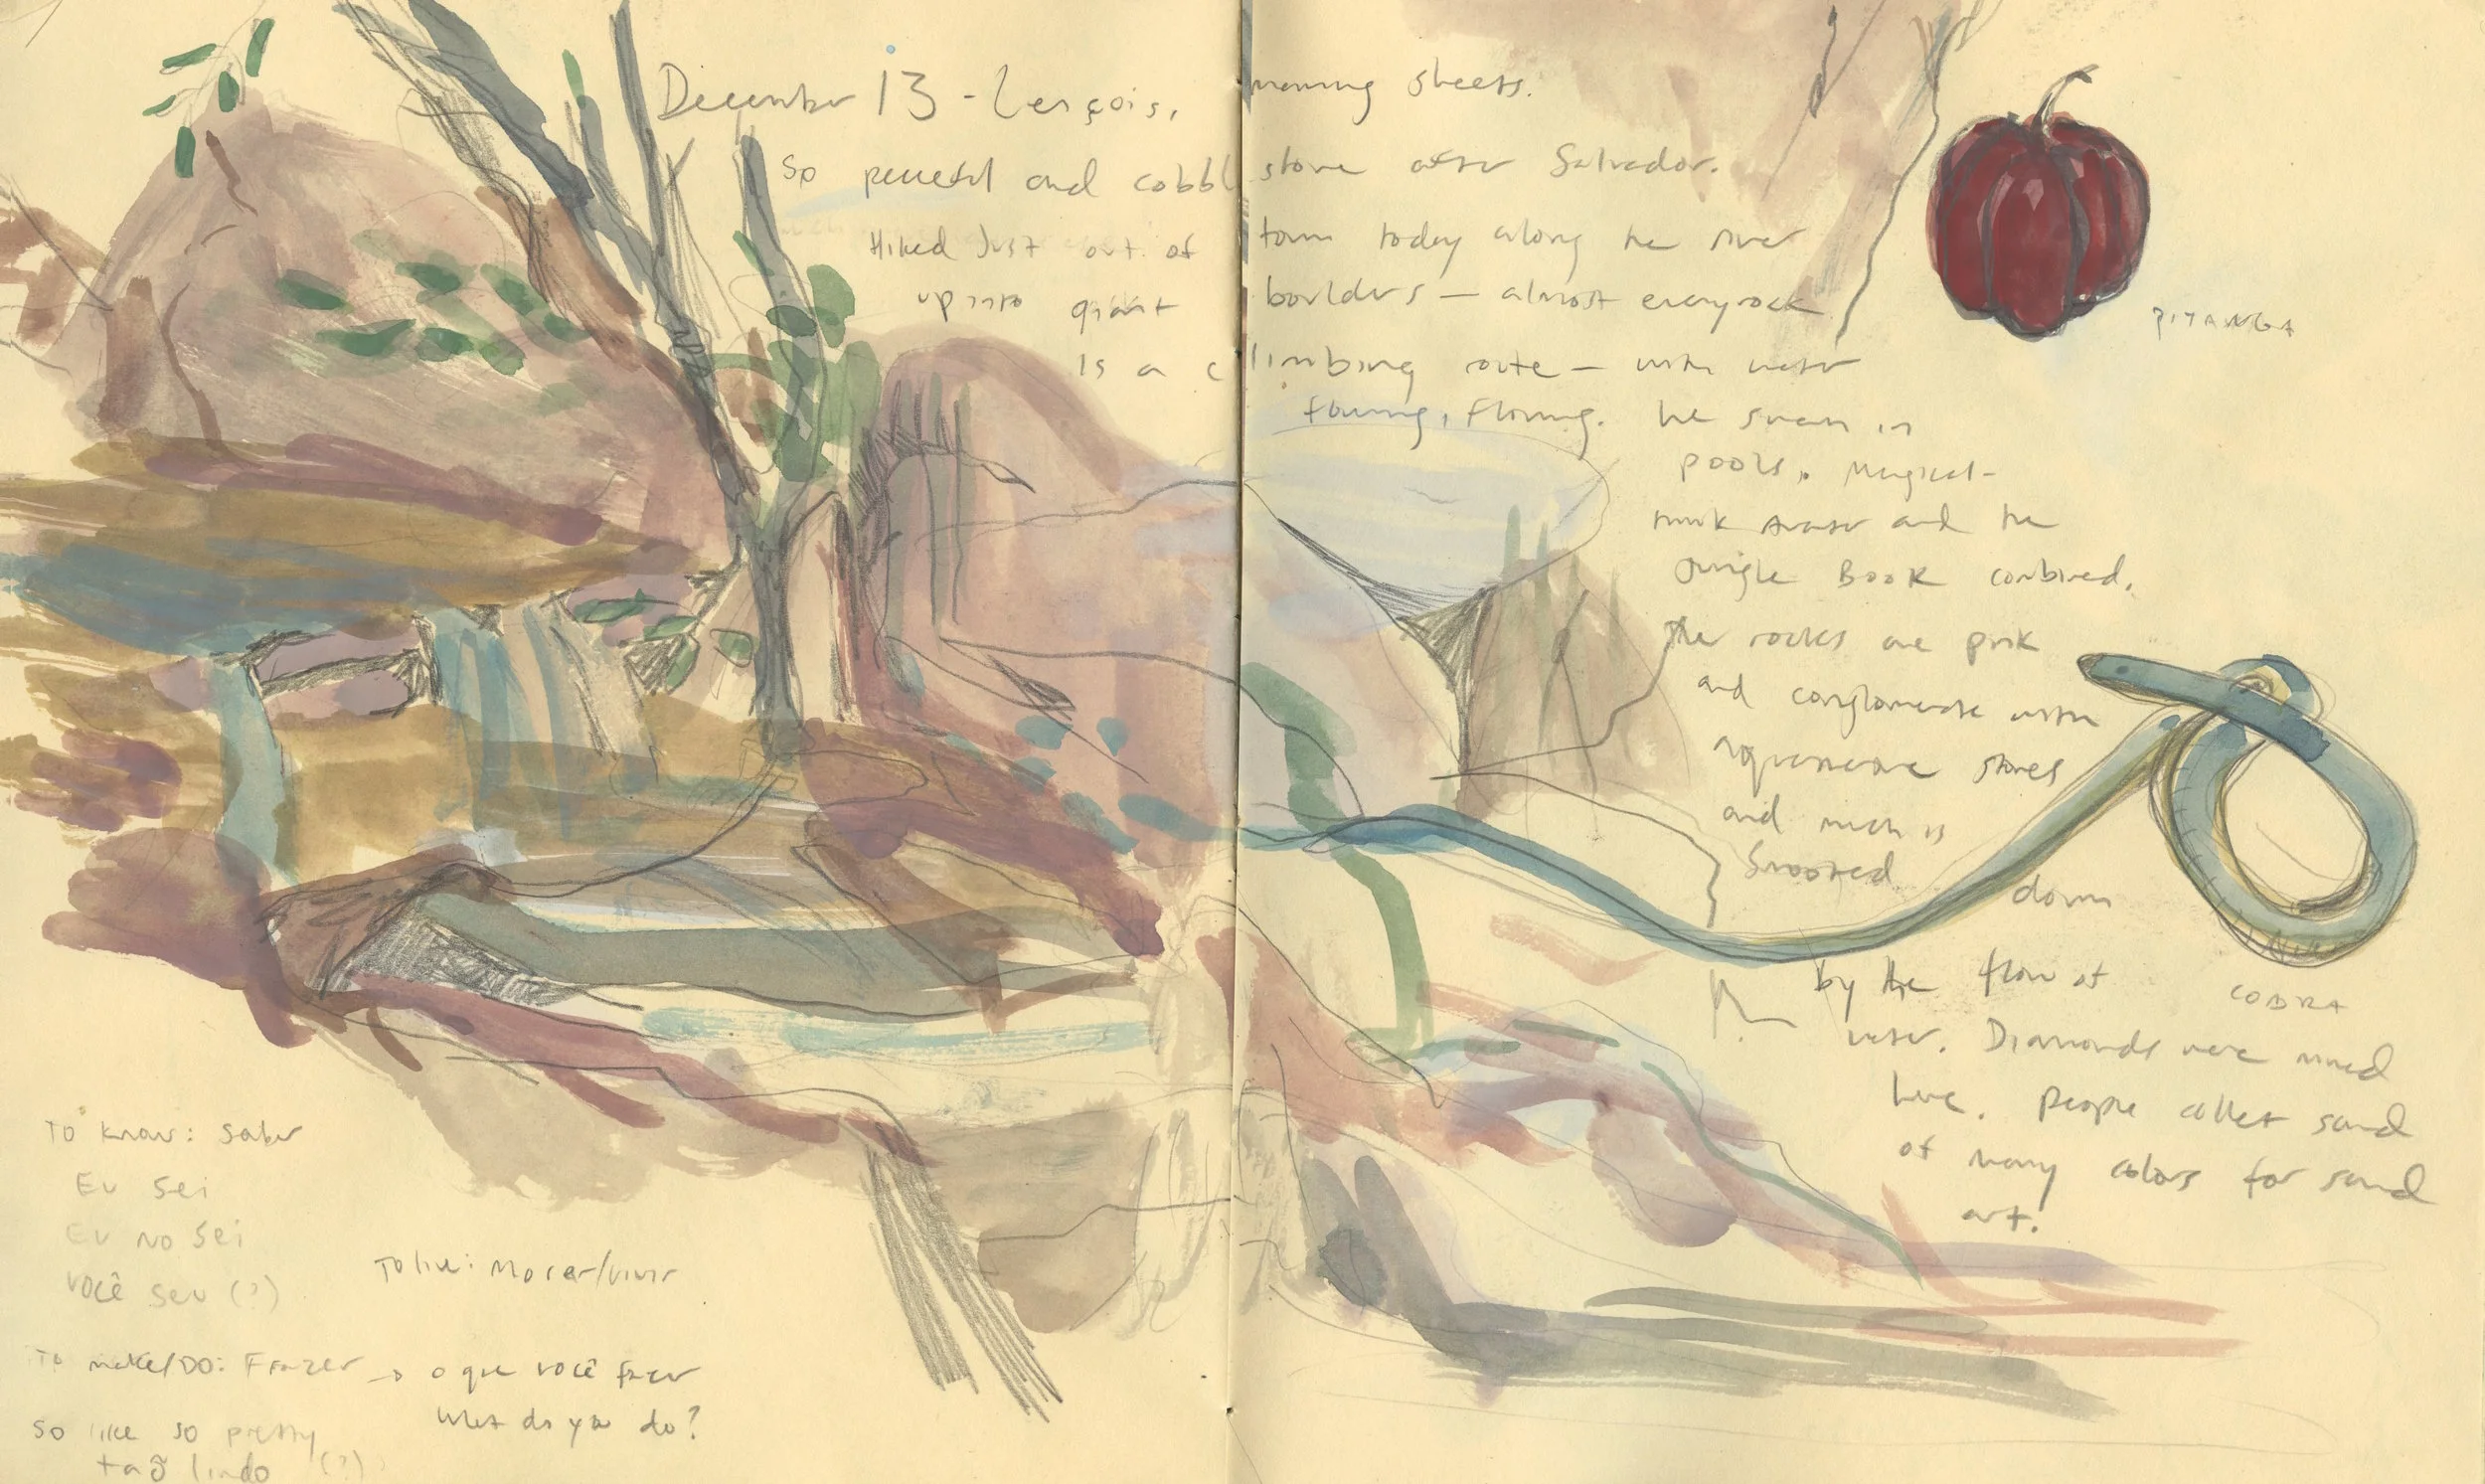 December 13 - Lençois, meaning sheets.
So peaceful and cobblestone after Salvador.
Hiked Just out of town today along the river
up into giant boulders — almost every rock
Is a climbing route — with water
flowing, flowing. We swam in
pools. Magical -
think Avatar and the
Jungle Book combined.
PITANGA
The rocks are pink
and conglomerate with
aquamarine stones
and much is
smoothed
down
by the flow of
COBRA
water. Diamonds were mined
here. People collect sand
of many colors for sand
art.
To know: saber
Eu sei
Eu no sei
você seu (?)
To live: Morar/vivir
To make/DO: Frazer → o que você fazer
What do you do?
so like so pretty
taõ lindo (?)